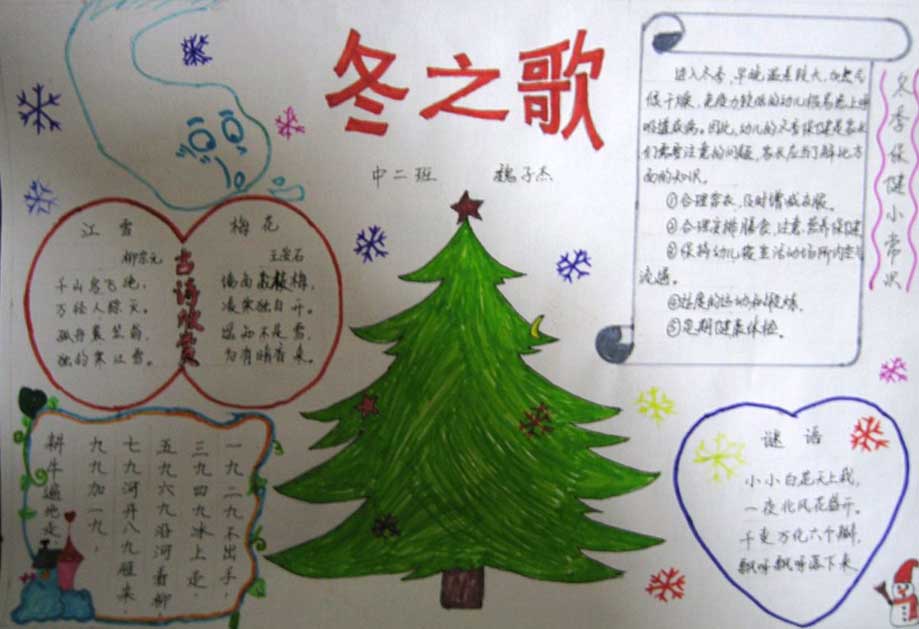 冬之歌
中二班 魏子杰
江雪
柳宗元
千山鸟飞绝,
万径人踪灭。
孤舟蓑笠翁,
独钓寒江雪。
古诗欣赏
梅花
王安石
墙角数枝梅,
凌寒独自开。
遥知不是雪,
为有暗香来。
进入冬季,早晚温差较大,
干燥,免疫力较低的幼儿极易患上呼
吸道疾病。因此,幼儿的冬季保健是家长
们需要注意的问题,家长应当了解方
面的知识。
①合理穿衣,及时增减衣服。
②合理安排膳食,注意营养保健
③保持幼儿寝室活动场所内空气
流通。
④适度的运动和锻炼。
⑤定期健康体检。
冬季保健小常识
一九二九不出手,
三九四九冰上走,
五九六九沿河看柳,
七九河开八九雁来,
九九加一九,
耕牛遍地走
谜语
小小白花天上栽,
一夜北风花盛开。
千变万化六个瓣,
飘呀飘呀落下来